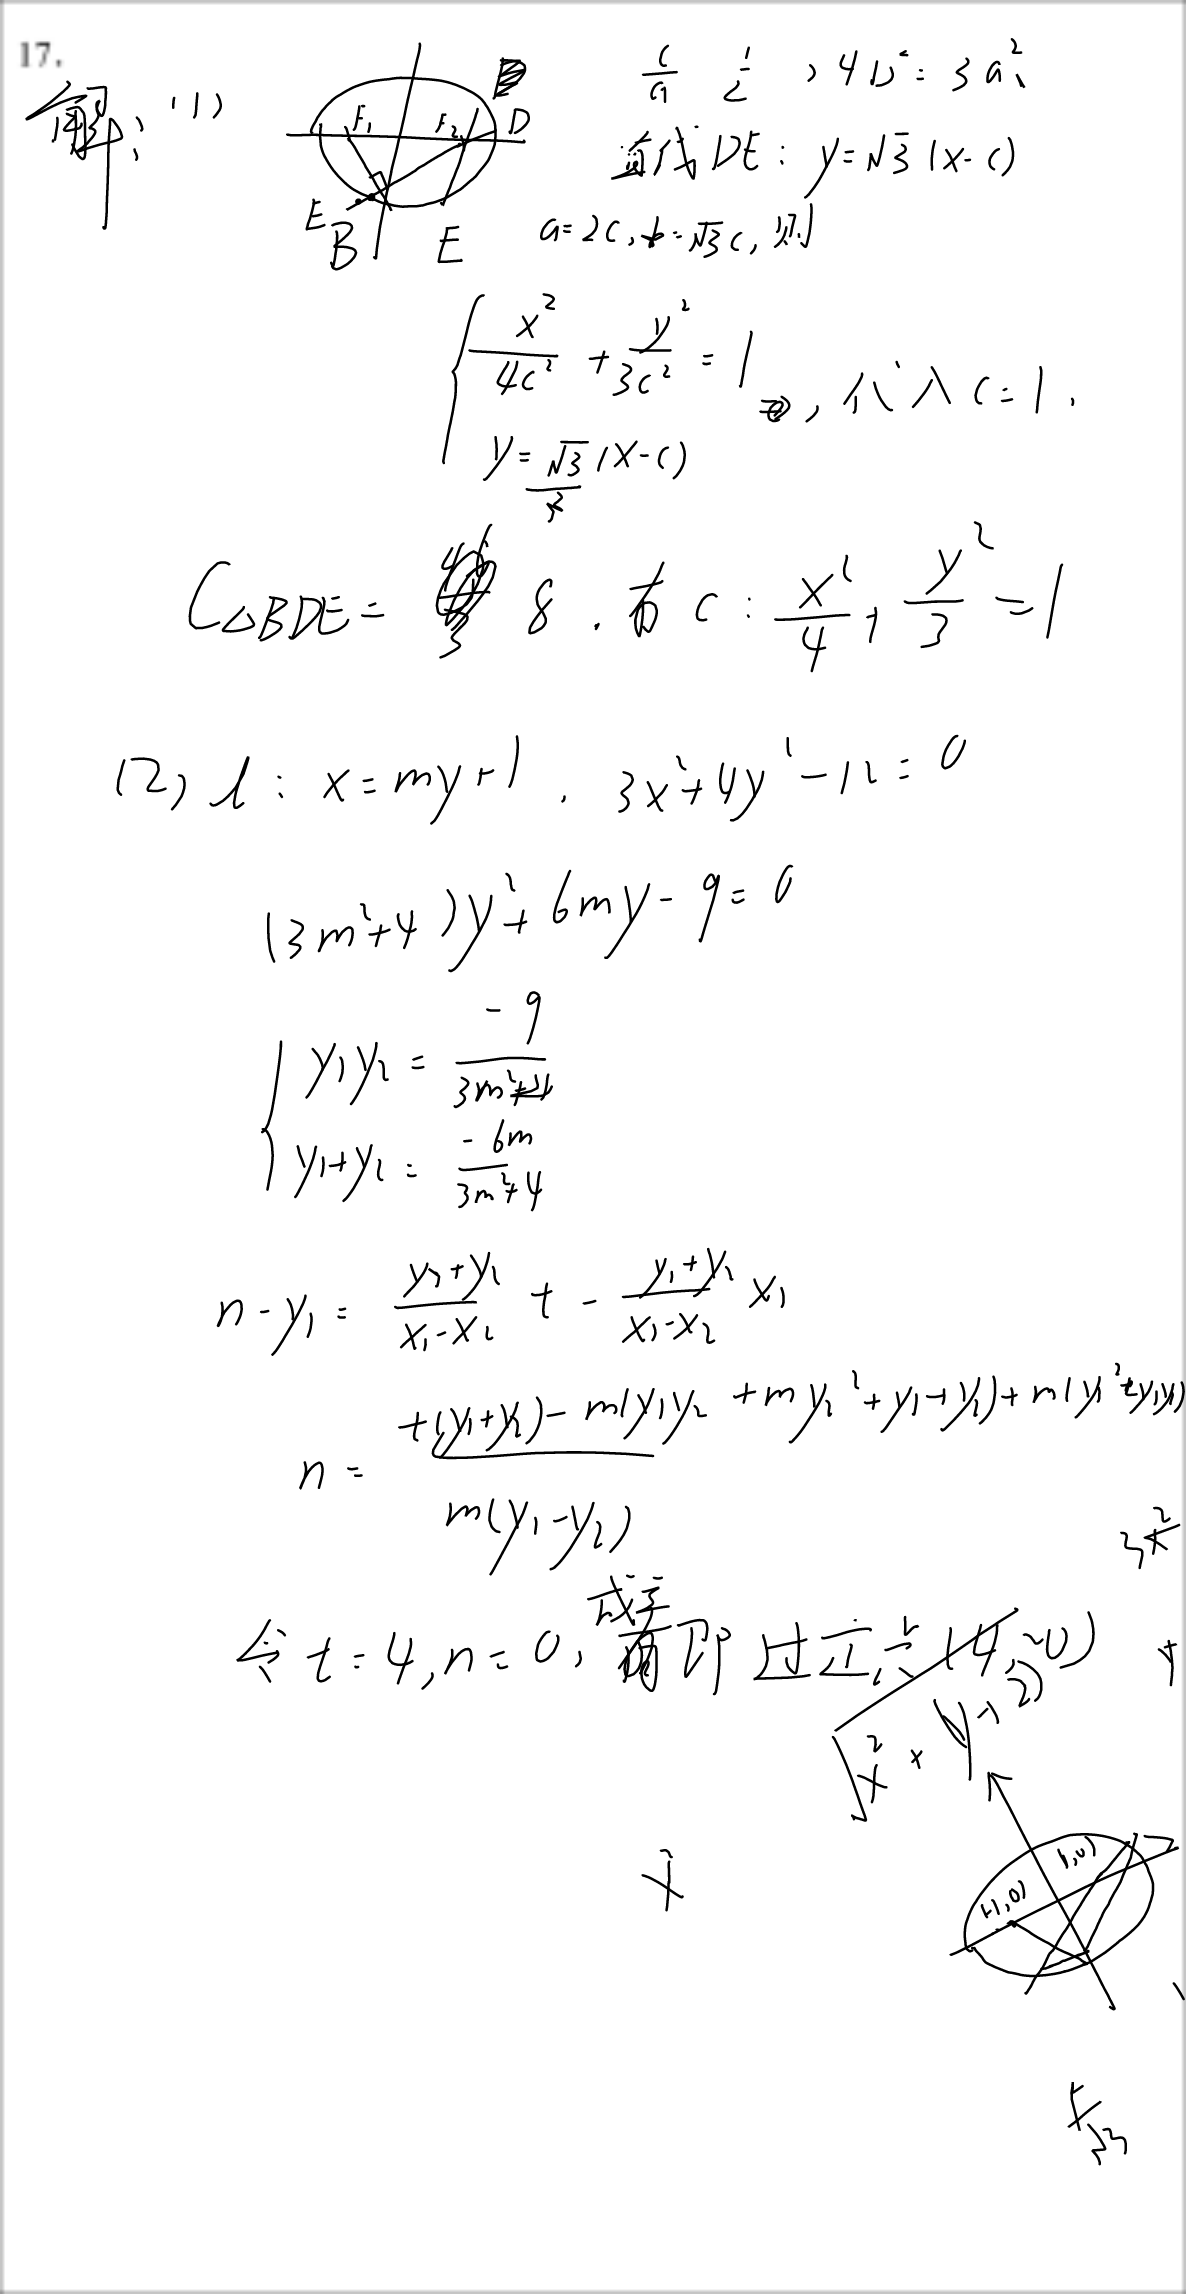 17.
解: (1)
F₁ F₂ D
E B E
c/a 1/2, 4b² = 3a²,
直线DE: y=√3(x-c)
a=2c, b=√3c, 则
{ x²/4c² + y²/3c² = 1
y=√3/3(x-c)
, 代入c=1.
C△BDE= 8. 故 C: x²/4 + y²/3 = 1
(2) l: x=my+1. 3x²+4y²-12=0
(3m²+4)y²+6my-9=0
{ y₁y₂ = -9/(3m²+4)
y₁+y₂ = -6m/(3m²+4)
n-y₁= (y₁+y₂)/(x₁-x₂) t - (y₁+y₂)/(x₁-x₂) x₁
n= (t(y₁+y₂)-m(y₁y₂+my₂²+y₁+y₂)+m(y₁²+y₁y₂))/(m(y₁-y₂))
3x²
令t=4, n=0, 成立
即过定点(4,0)
(-1,0) (1,0)